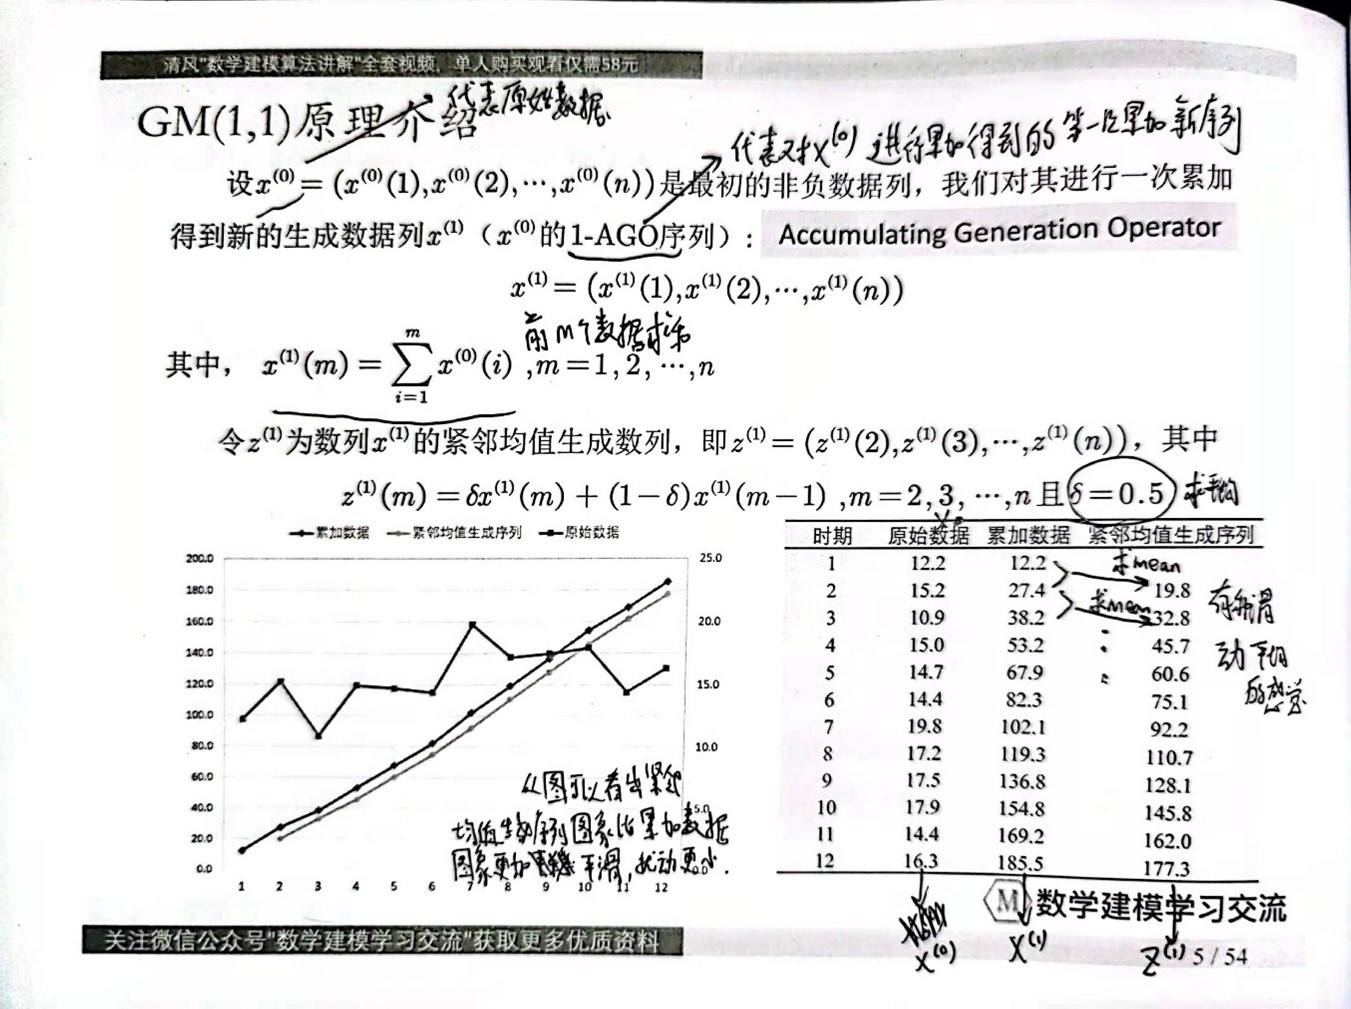 清风"数学建模算法讲解"全套视频，单人购买观看仅需58元
GM(1,1)原理介绍
代表原始数据
代表对x⁽⁰⁾进行累加得到的第一次累加新序列
设x⁽⁰⁾ = (x⁽⁰⁾(1),x⁽⁰⁾(2),⋯,x⁽⁰⁾(n))是最初的非负数据列，我们对其进行一次累加
得到新的生成数据列x⁽¹⁾（x⁽⁰⁾的1-AGO序列）：Accumulating Generation Operator
x⁽¹⁾ = (x⁽¹⁾(1),x⁽¹⁾(2),⋯,x⁽¹⁾(n))
前m个数据求和
其中，x⁽¹⁾(m) = ∑_{i=1}^{m} x⁽⁰⁾(i) ,m = 1, 2, ⋯,n
令z⁽¹⁾为数列x⁽¹⁾的紧邻均值生成数列，即z⁽¹⁾ = (z⁽¹⁾(2),z⁽¹⁾(3),⋯,z⁽¹⁾(n))，其中
z⁽¹⁾(m) = δx⁽¹⁾(m) + (1−δ)x⁽¹⁾(m−1) ,m = 2, 3, ⋯,n 且 δ = 0.5 求平均
累加数据 紧邻均值生成序列 原始数据
200.0 25.0
180.0
160.0 20.0
140.0
120.0 15.0
100.0
80.0 10.0
60.0
40.0 5.0
20.0
0.0 0.0
1 2 3 4 5 6 7 8 9 10 11 12
从图可以看出紧邻
均值生成序列图象比累加数据
图象更加平滑，扰动更小.
时期 原始数据 累加数据 紧邻均值生成序列
1 12.2 12.2 求mean
2 15.2 27.4 19.8
3 10.9 38.2 求mean 32.8
4 15.0 53.2 45.7
5 14.7 67.9 60.6
6 14.4 82.3 75.1
7 19.8 102.1 92.2
8 17.2 119.3 110.7
9 17.5 136.8 128.1
10 17.9 154.8 145.8
11 14.4 169.2 162.0
12 16.3 185.5 177.3
动平均
的感觉
M 数学建模学习交流
x⁽⁰⁾ x⁽¹⁾ z⁽¹⁾
关注微信公众号"数学建模学习交流"获取更多优质资料
5 / 54